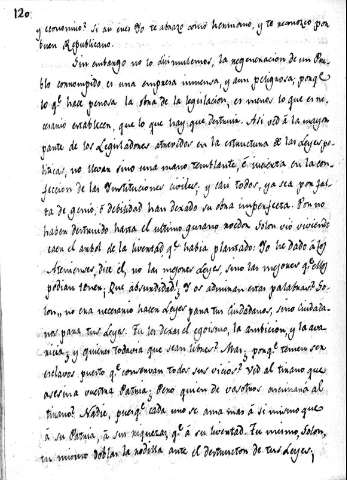 120
y economino? Si asi eres Yo te abrazo como hermano, y te reconozco por
buen Republicano.
Sin embargo no lo disimulemos, la regeneracion de un Pue-
blo corrompido, es una empresa inmensa, y aun peligrosa; porqe
lo qe hace penosa la obra de la legislacion, es menos lo que es ne-
cesario establecer, que lo que hay que destruir. Asi ved â la mayor
parte de los Legisladores atrevidos en la estructura de las Leyes po-
liticas, no llevan sino una mano temblante, é incierta en la con-
feccion de las Instituciones civiles, y casi todos, ya sea por fal-
ta de genio, ô debilidad han dexado su obra imperfecta. Por no
haber destruido hasta el ultimo gusano roedor Solon vió viviendo
caer el arbol de la livertad qe habia plantado: Yo he dado â los
Atenienses, dice el, no las mejores Leyes, sino las mejores qe ellos
podian tener; Que absurdidad! Y os admiran estas palabras? So-
lon, no era necesario hacer Leyes para tus Ciudadanos, sino Ciudada-
nos para tus Leyes. Tu les dexas el egoismo, la ambicion, y la ava-
ricia; y quieres todavia que sean libres? Mas; porqe temen ser
esclavos puesto qe conservan todos sus vicios? Ved al tirano que
asesina vuestra Patria; Pero quien de vosotros arruinará al
tirano? Nadie, puesqe cada uno se ama mas â si mismo que
â su Patria, â sus riquezas, qe â su livertad. Tu mismo, Solon,
tu mismo doblas la rodilla ante el destructor de tus Leyes;